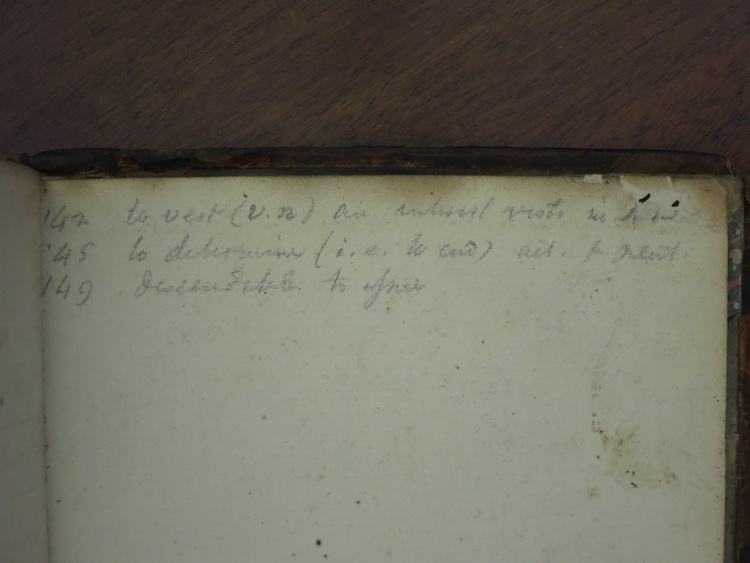 142 to vest (v.n) an interest vests in
145 to determine (i.e. to end) act. & neut.
149 to